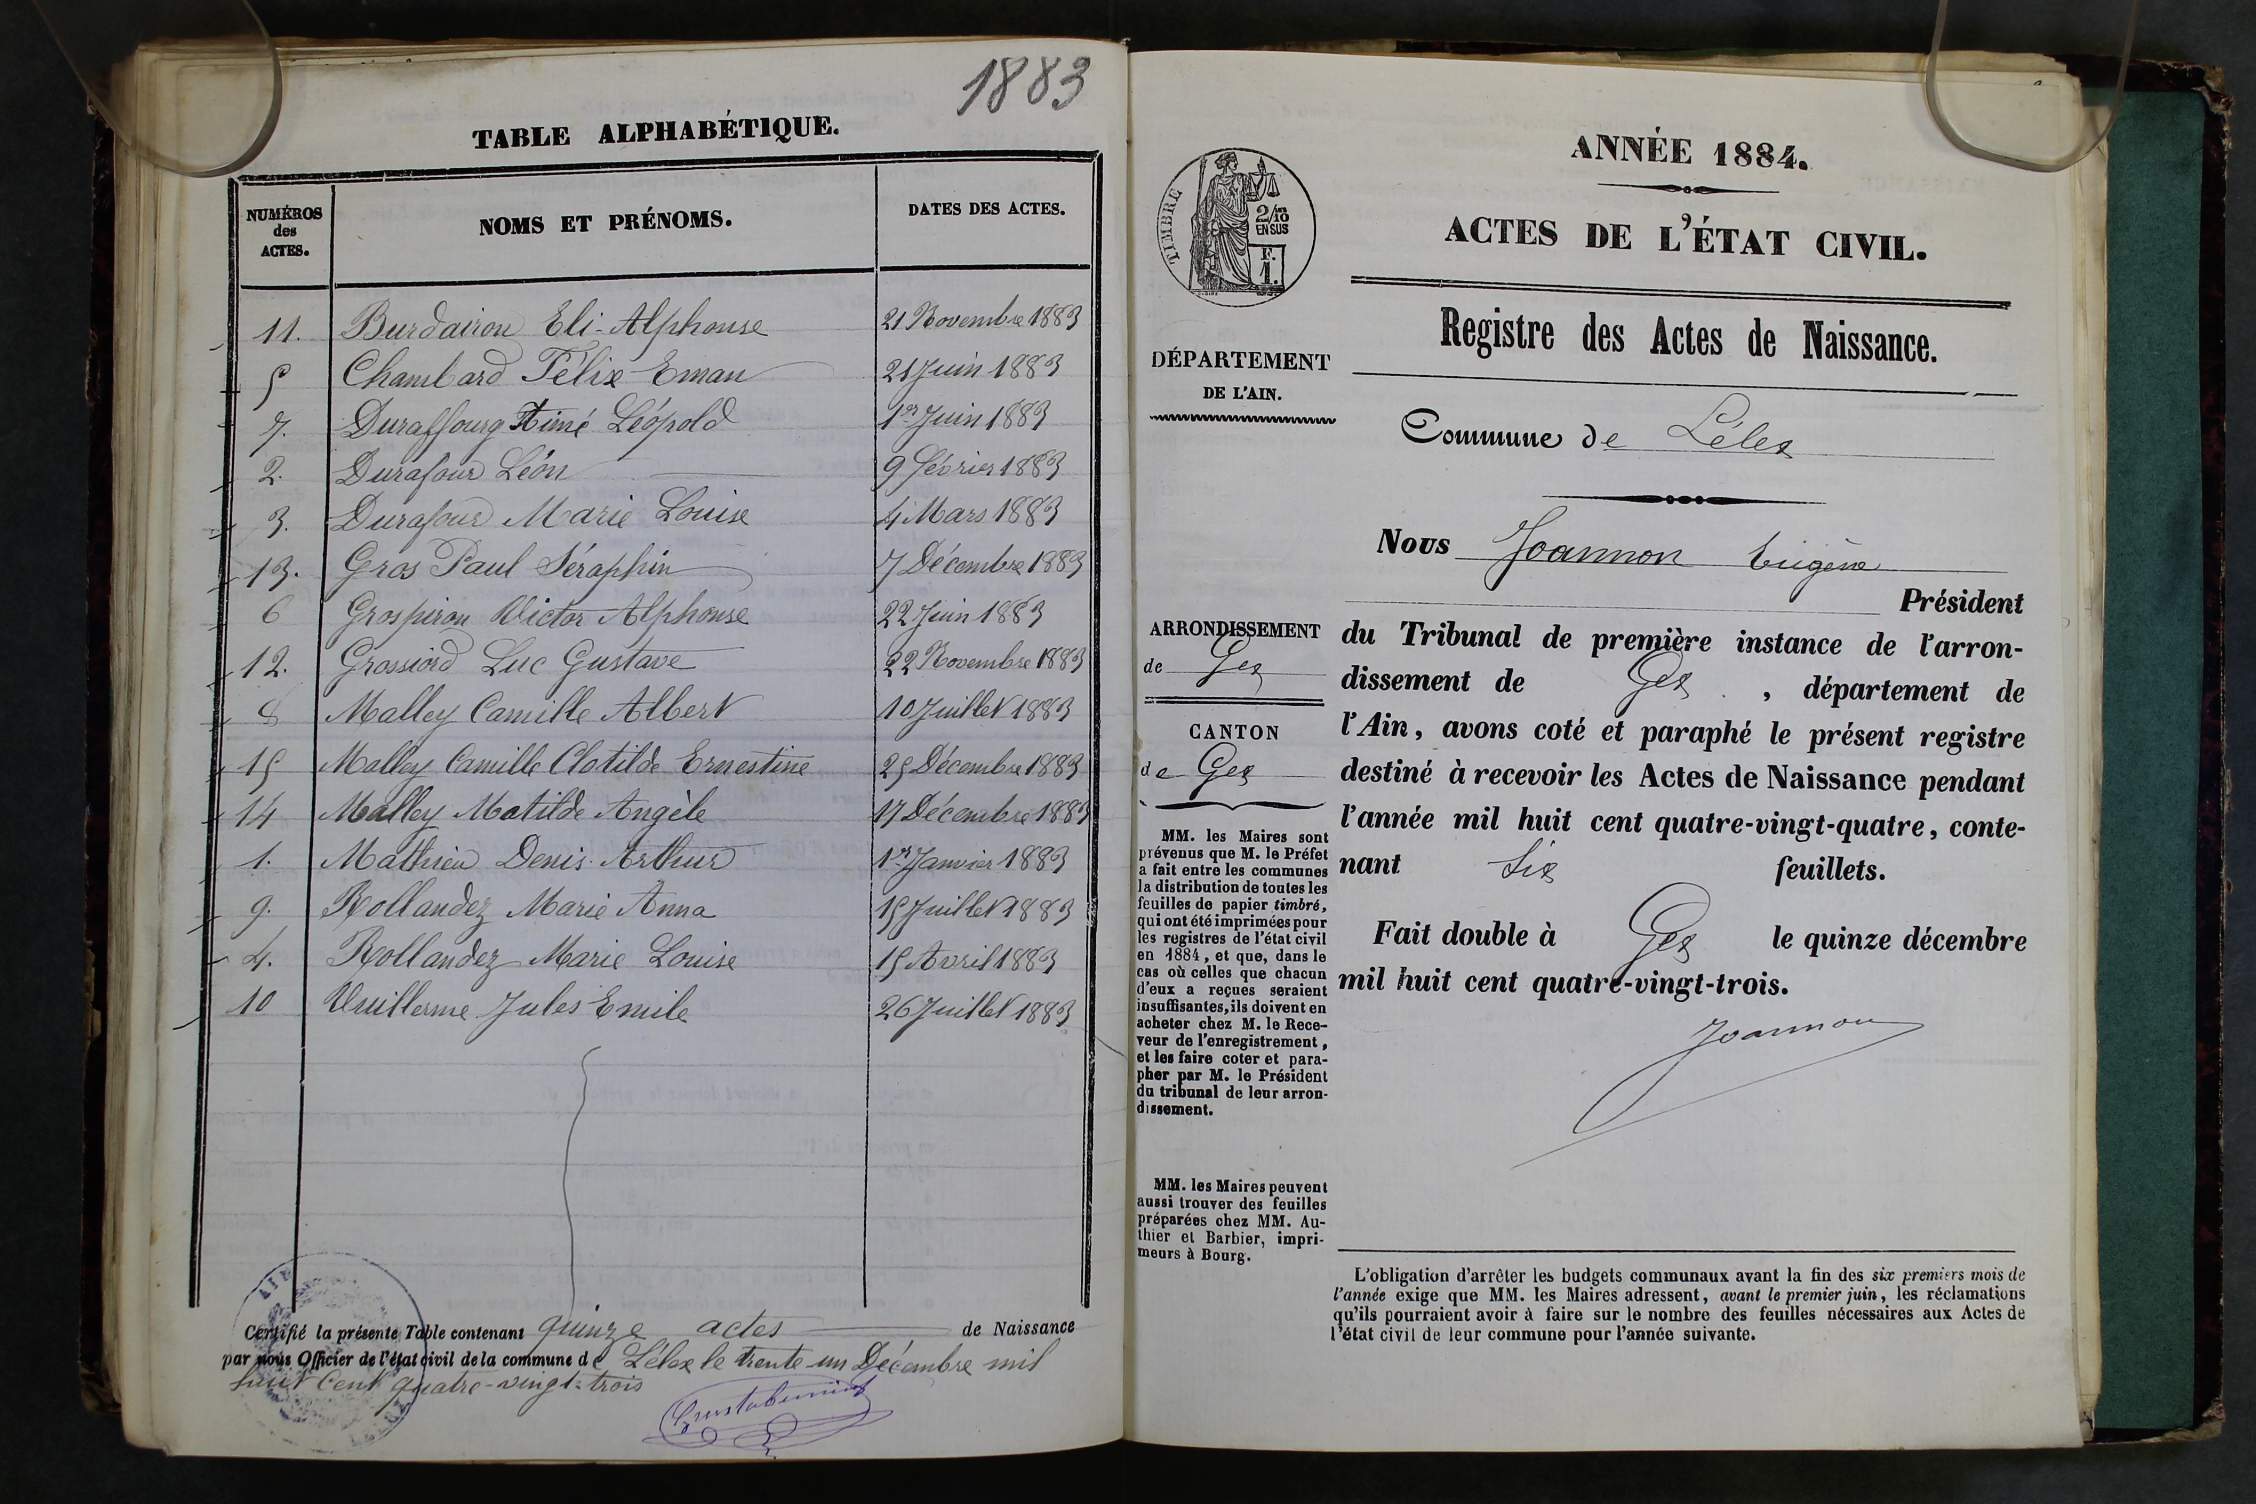 1883
TABLE ALPHABÉTIQUE.
NUMÉROS des ACTES. NOMS ET PRÉNOMS. DATES DES ACTES.
11. Burdairon Eli-Alphonse 21 Novembre 1883
5 Chambard Félix Eman 21 Juin 1883
7. Duraffourg Aimé Léopold 1er Juin 1883
2. Durafour Léon 9 Février 1883
3. Durafour Marie Louise 4 Mars 1883
13. Gros Paul Séraphin 7 Décembre 1883
6 Grospiron Victor Alphonse 22 Juin 1883
12. Grossiord Luc Gustave 22 Novembre 1883
8 Malley Camille Albert 10 Juillet 1883
15 Malley Camille Clotilde Ernestine 25 Décembre 1883
14 Malley Matilde Angèle 17 Décembre 1883
1. Mathieu Denis Arthur 1er Janvier 1883
9. Rollandez Marie Anna 15 Juillet 1883
4. Rollandez Marie Louise 15 Avril 1883
10 Vuillerme Jules Emile 26 Juillet 1883
Certifié la présente Table contenant quinze actes de Naissance
par nous Officier de l'état civil de la commune de Lélex le trente-un Décembre mil
huit cent quatre-vingt-trois
AIN
ANNÉE 1884.
ACTES DE L'ÉTAT CIVIL.
TIMBRE
2/10 EN SUS
F.
1.
Registre des Actes de Naissance.
DÉPARTEMENT
DE L'AIN.
Commune de Lélex
Nous Joannon Eugène
Président
du Tribunal de première instance de l'arron-
dissement de Gex, département de
l'Ain, avons coté et paraphé le présent registre
destiné à recevoir les Actes de Naissance pendant
l'année mil huit cent quatre-vingt-quatre, conte-
nant six feuillets.
Fait double à Gex le quinze décembre
mil huit cent quatre-vingt-trois.
Joannon
ARRONDISSEMENT
de Gex
CANTON
de Gex
MM. les Maires sont
prévenus que M. le Préfet
a fait entre les communes
la distribution de toutes les
feuilles de papier timbré,
qui ont été imprimées pour
les registres de l'état civil
en 1884, et que, dans le
cas où celles que chacun
d'eux a reçues seraient
insuffisantes, ils doivent en
acheter chez M. le Rece-
veur de l'enregistrement,
et les faire coter et para-
pher par M. le Président
du tribunal de leur arron-
dissement.
MM. les Maires peuvent
aussi trouver des feuilles
préparées chez MM. Au-
thier et Barbier, impri-
meurs à Bourg.
L'obligation d'arrêter les budgets communaux avant la fin des six premiers mois de
l'année exige que MM. les Maires adressent, avant le premier juin, les réclamations
qu'ils pourraient avoir à faire sur le nombre des feuilles nécessaires aux Actes de
l'état civil de leur commune pour l'année suivante.